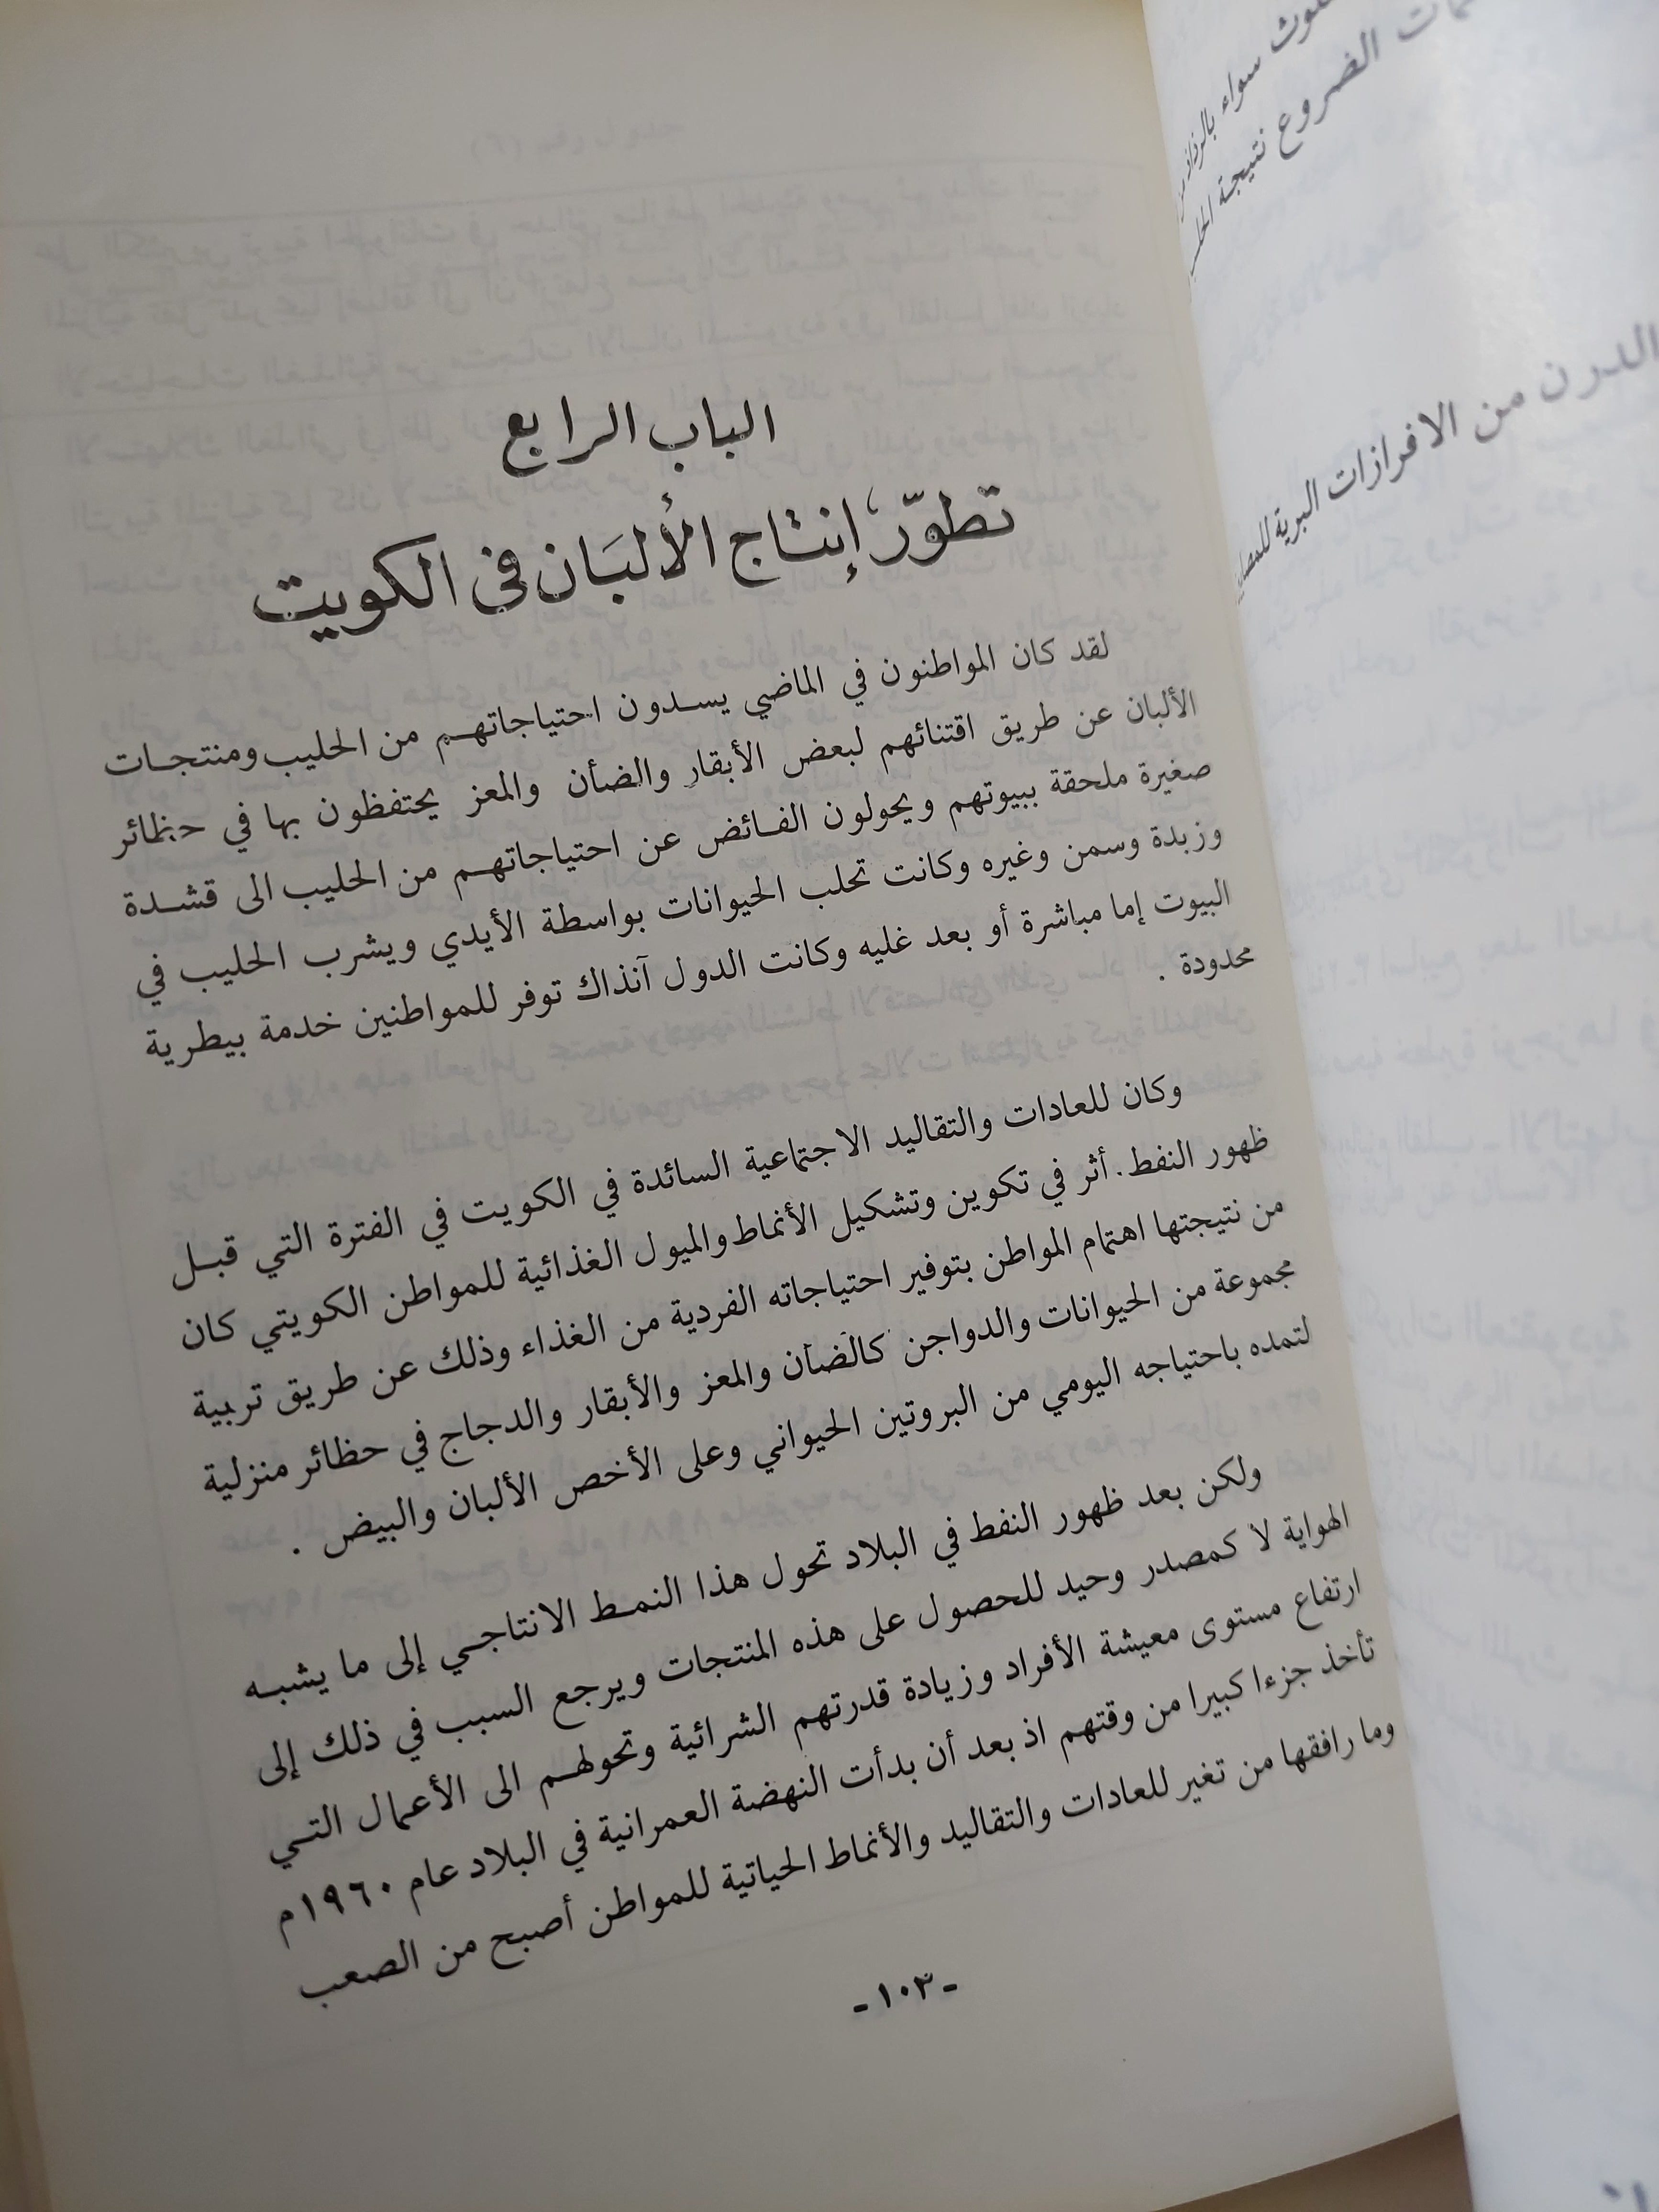 الباب الرابع
تطوّر إنتاج الألبان في الكويت
لقد كان المواطنون في الماضي يسدون احتياجاتهم من الحليب ومنتجات
الألبان عن طريق اقتنائهم لبعض الأبقار والضأن والمعز يحتفظون بها في حظائر
صغيرة ملحقة ببيوتهم ويحولون الفائض عن احتياجاتهم من الحليب الى قشدة
وزبدة وسمن وغيره وكانت تحلب الحيوانات بواسطة الأيدي ويشرب الحليب في
البيوت إما مباشرة أو بعد غليه وكانت الدول آنذاك توفر للمواطنين خدمة بيطرية
محدودة .
وكان للعادات والتقاليد الاجتماعية السائدة في الكويت في الفترة التي قبل
ظهور النفط . أثر في تكوين وتشكيل الأنماط والميول الغذائية للمواطن الكويتي كان
من نتيجتها اهتمام المواطن بتوفير احتياجاته الفردية من الغذاء وذلك عن طريق تربية
مجموعة من الحيوانات والدواجن كالضأن والمعز والأبقار والدجاج في حظائر منزلية
لتمده باحتياجه اليومي من البروتين الحيواني وعلى الأخص الألبان والبيض .
ولكن بعد ظهور النفط في البلاد تحول هذا النمط الانتاجي إلى ما يشبه
الهواية لا كمصدر وحيد للحصول على هذه المنتجات ويرجع السبب في ذلك إلى
ارتفاع مستوى معيشة الأفراد وزيادة قدرتهم الشرائية وتحولهم الى الأعمال التي
تأخذ جزءا كبيرا من وقتهم اذ بعد أن بدأت النهضة العمرانية في البلاد عام ١٩٦٠م
وما رافقها من تغير للعادات والتقاليد والأنماط الحياتية للمواطن أصبح من الصعب
- ١٠٣ -
سواء
الضروع نتيجة
الدرن من الافرازات البرية